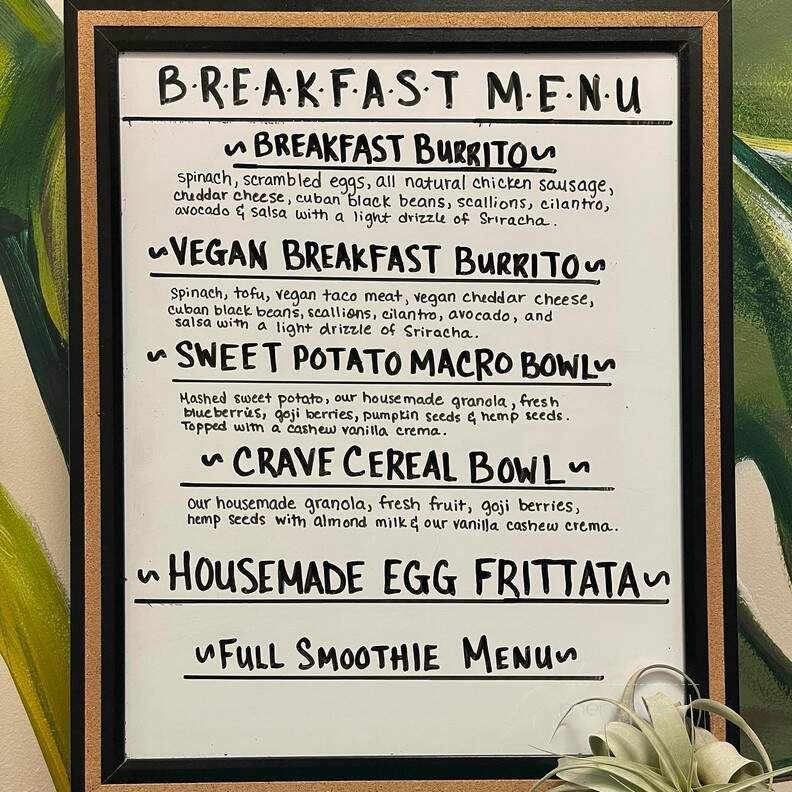 B·R·E·A·K·F·A·S·T M·E·N·U
~ BREAKFAST BURRITO ~
spinach, scrambled eggs, all natural chicken sausage,
cheddar cheese, cuban black beans, scallions, cilantro,
avocado & salsa with a light drizzle of Sriracha.
~ VEGAN BREAKFAST BURRITO ~
Spinach, tofu, vegan taco meat, vegan cheddar cheese,
cuban black beans, scallions, cilantro, avocado, and
salsa with a light drizzle of Sriracha.
~ SWEET POTATO MACRO BOWL ~
Mashed sweet potato, our housemade granola, fresh
blueberries, goji berries, pumpkin seeds & hemp seeds.
Topped with a cashew vanilla crema.
~ CRAVE CEREAL BOWL ~
our housemade granola, fresh fruit, goji berries,
hemp seeds with almond milk & our vanilla cashew crema.
~ HOUSEMADE EGG FRITTATA ~
~ FULL SMOOTHIE MENU ~